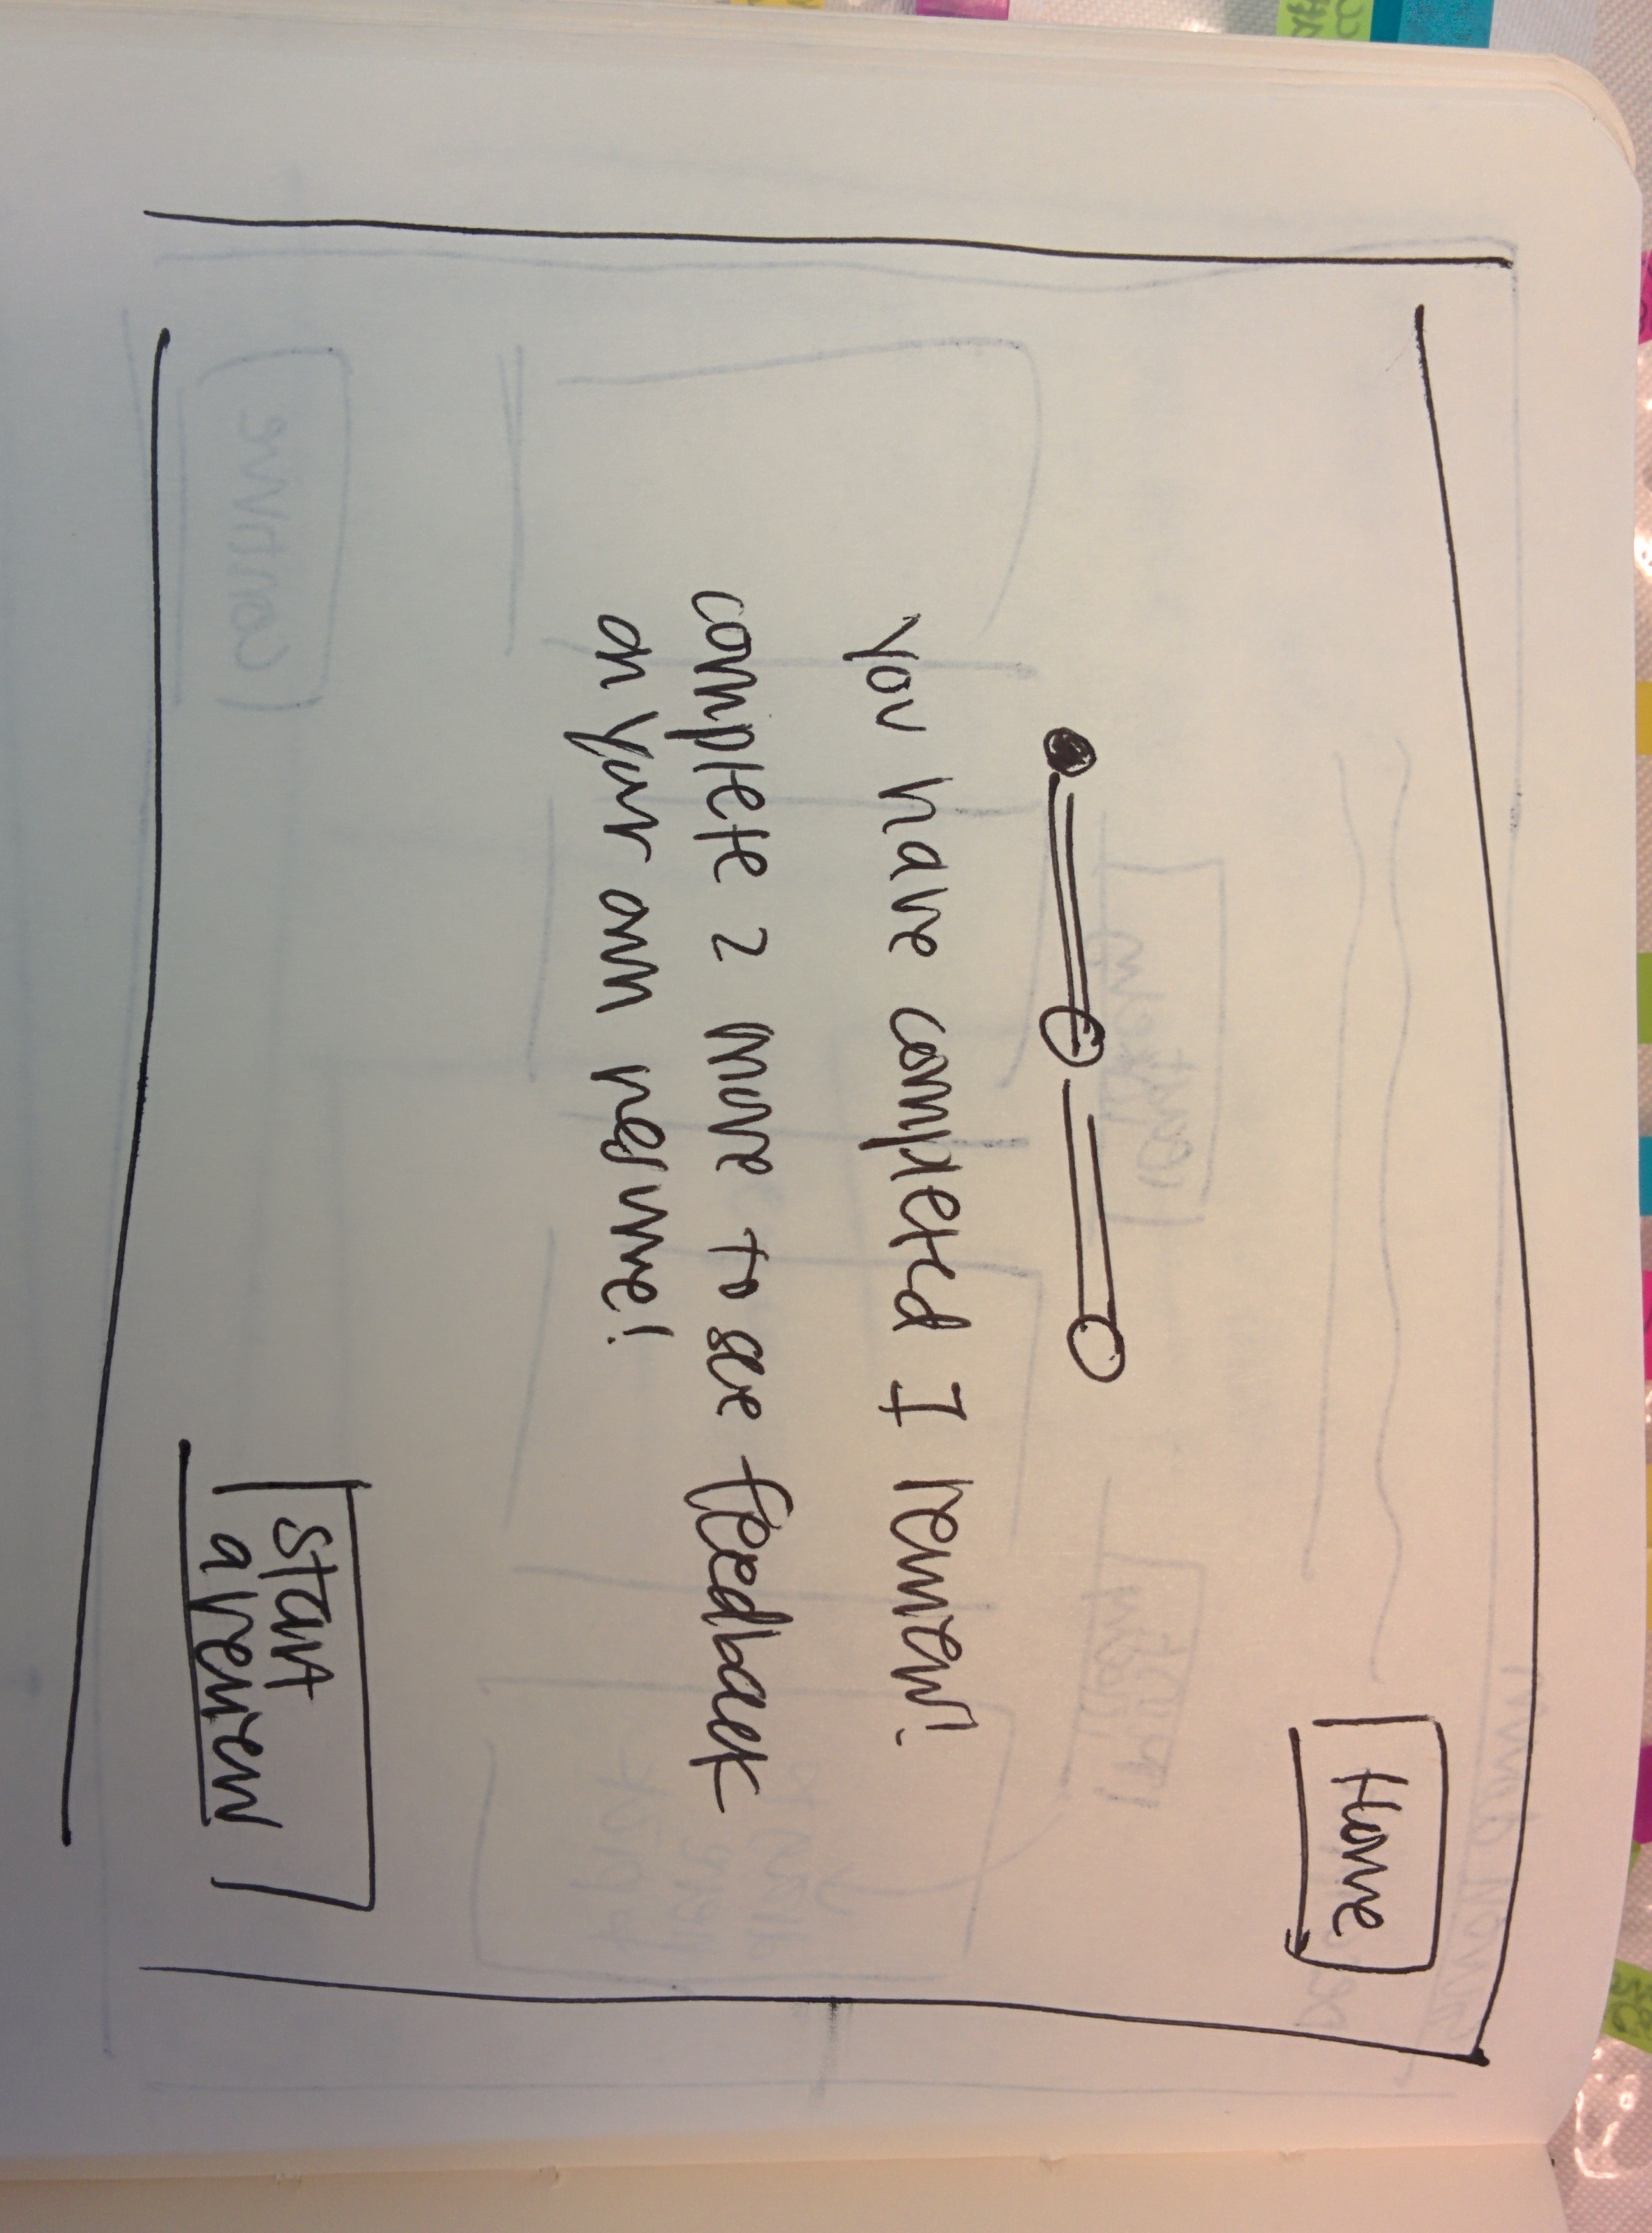 Home
You have completed 1 review!
complete 2 more to see feedback
on your own resume!
start
a review